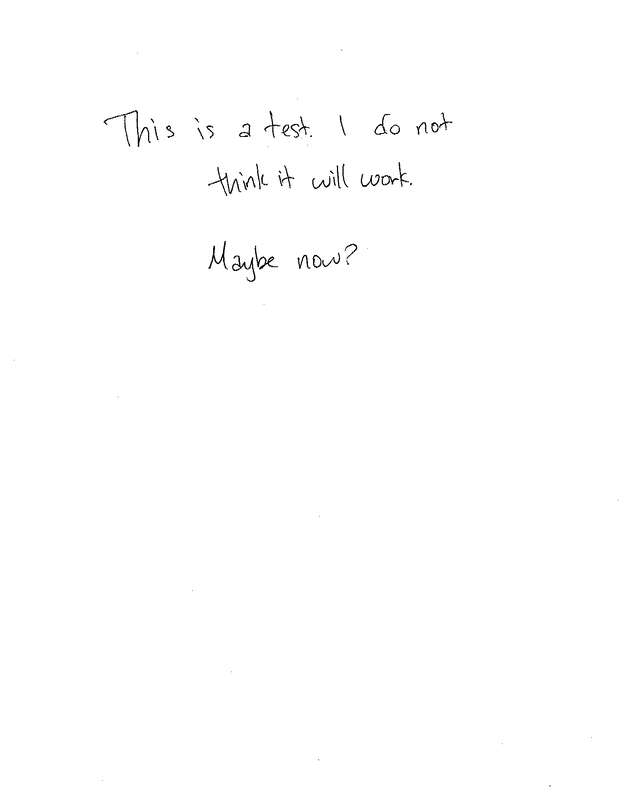 This is a test. I do not
think it will work.
Maybe now?